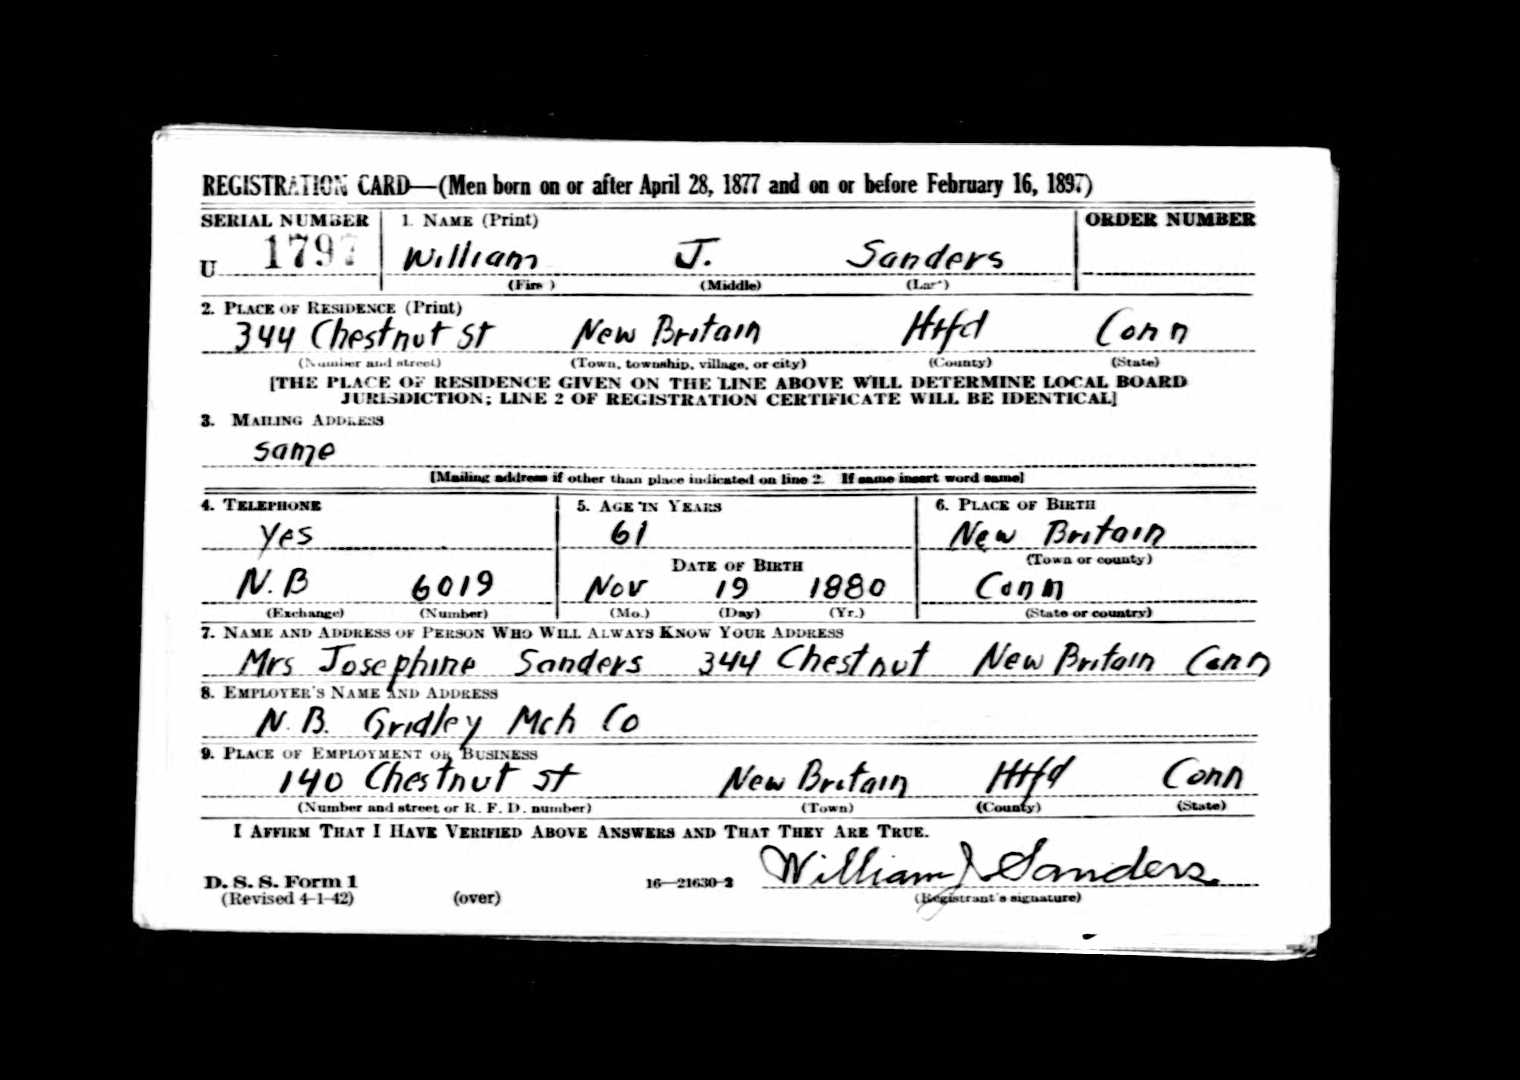 REGISTRATION CARD—(Men born on or after April 28, 1877 and on or before February 16, 1897)
SERIAL NUMBER 1. NAME (Print) ORDER NUMBER
U 1797 William J. Sanders
(First) (Middle) (Last)
2. PLACE OF RESIDENCE (Print)
344 Chestnut St New Britain Htfd Conn
(Number and street) (Town, township, village, or city) (County) (State)
[THE PLACE OF RESIDENCE GIVEN ON THE LINE ABOVE WILL DETERMINE LOCAL BOARD
JURISDICTION; LINE 2 OF REGISTRATION CERTIFICATE WILL BE IDENTICAL]
3. MAILING ADDRESS
same
[Mailing address if other than place indicated on line 2. If same insert word same]
4. TELEPHONE 5. AGE IN YEARS 6. PLACE OF BIRTH
Yes 61 New Britain
DATE OF BIRTH (Town or county)
N.B 6019 Nov 19 1880 Conn
(Exchange) (Number) (Mo.) (Day) (Yr.) (State or country)
7. NAME AND ADDRESS OF PERSON WHO WILL ALWAYS KNOW YOUR ADDRESS
Mrs Josephine Sanders 344 Chestnut New Britain Conn
8. EMPLOYER'S NAME AND ADDRESS
N.B. Gridley Mch Co
9. PLACE OF EMPLOYMENT OR BUSINESS
140 Chestnut St New Britain Htfd Conn
(Number and street or R. F. D. number) (Town) (County) (State)
I AFFIRM THAT I HAVE VERIFIED ABOVE ANSWERS AND THAT THEY ARE TRUE.
D. S. S. Form 1 16—21630-2 William J. Sanders
(Revised 4-1-42) (over) (Registrant's signature)